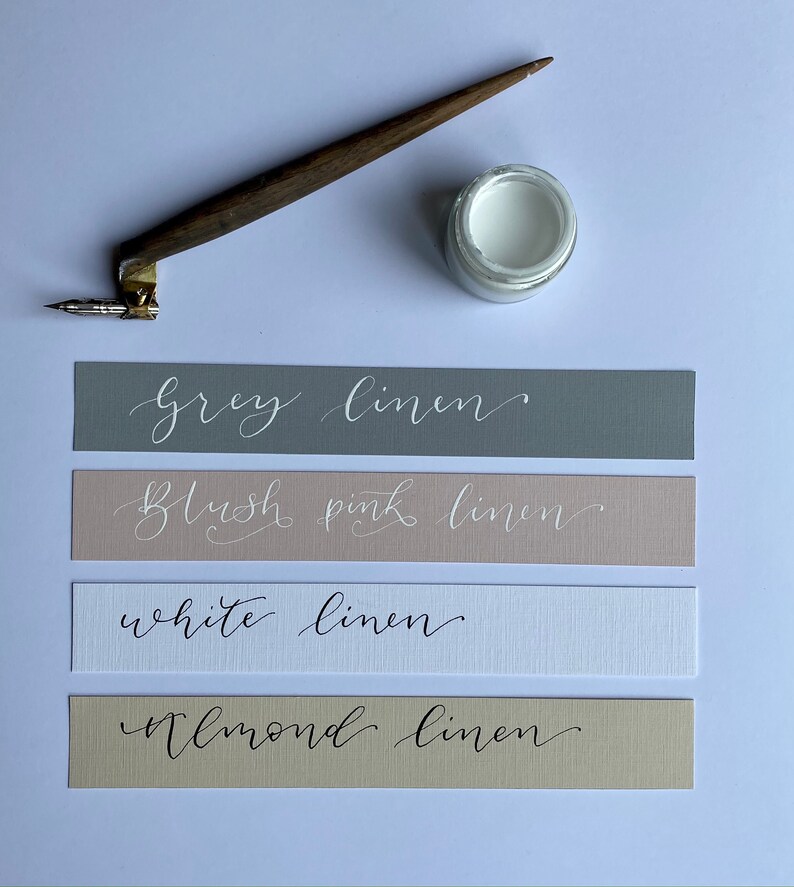 Grey linen
Blush pink linen
white linen
Almond linen